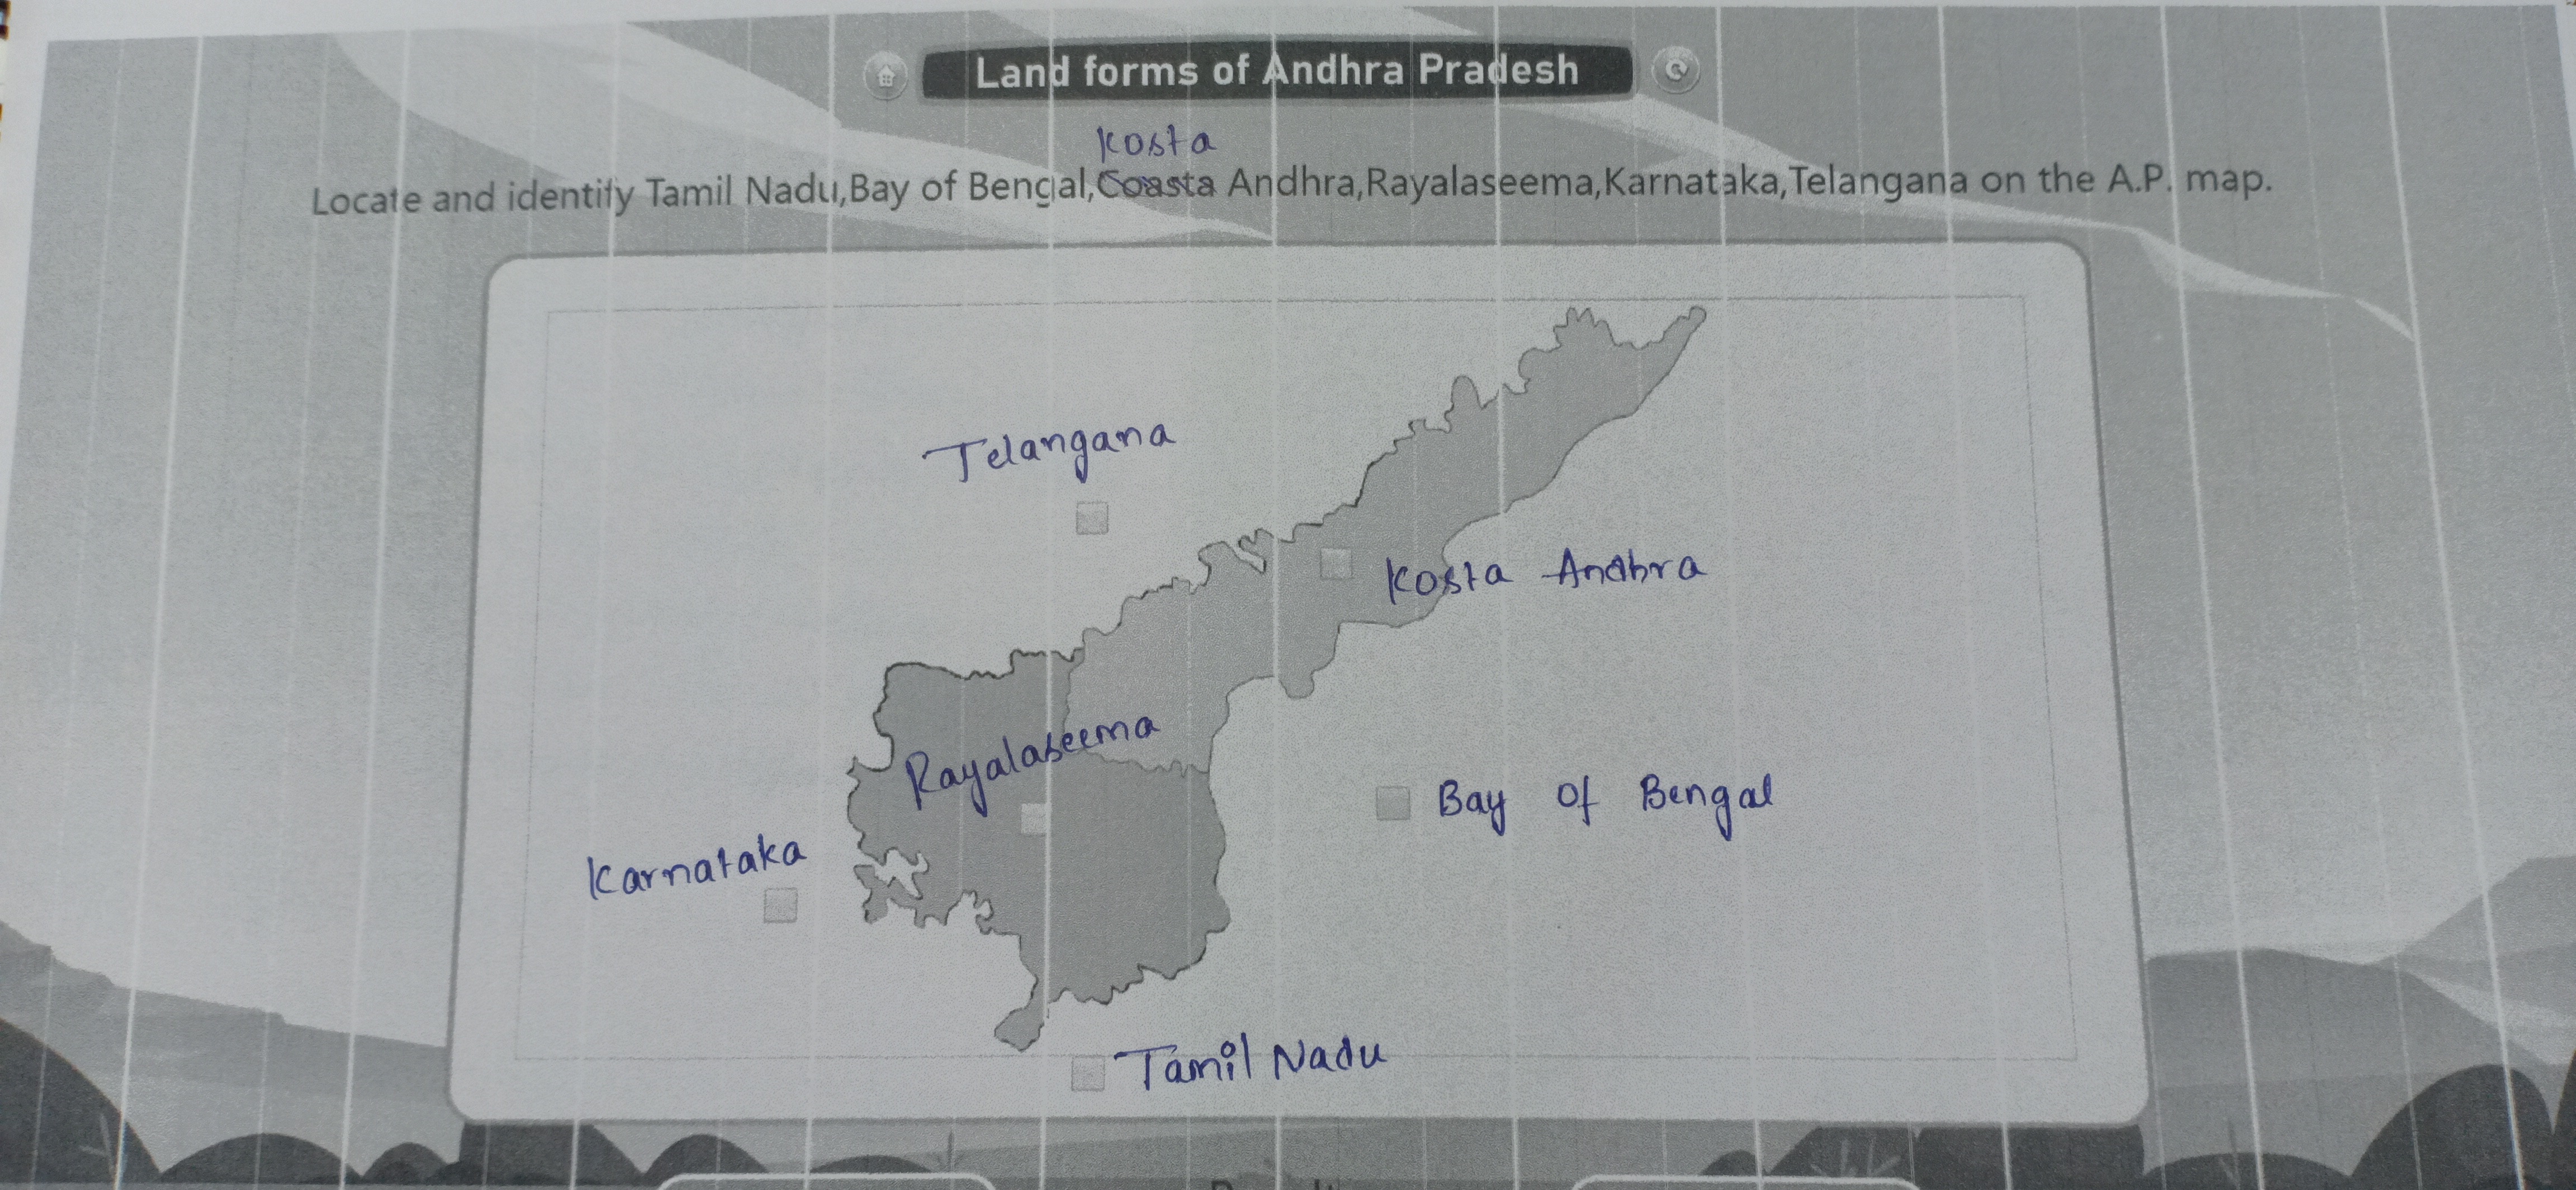 Land forms of Andhra Pradesh
Kosta
Locate and identify Tamil Nadu,Bay of Bengal,Coasta Andhra,Rayalaseema,Karnataka,Telangana on the A.P. map.
Telangana
Kosta Andhra
Rayalaseema
Bay of Bengal
Karnataka
Tamil Nadu